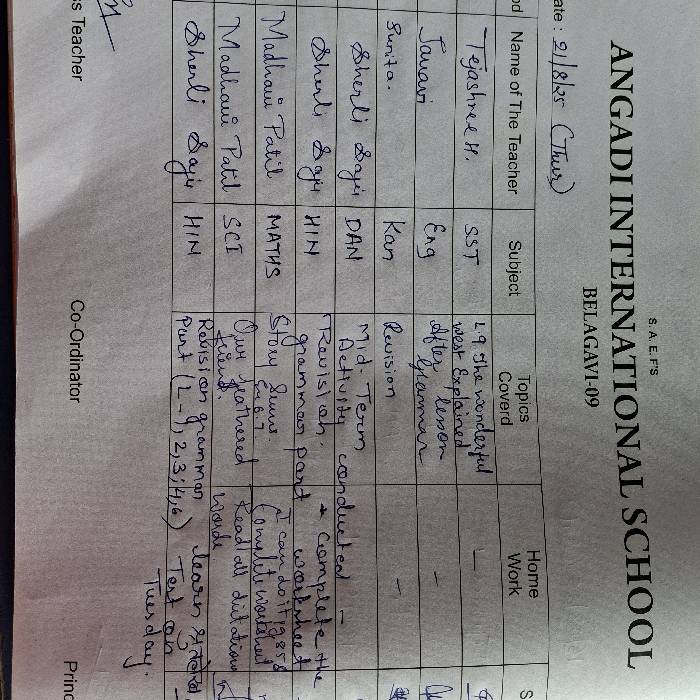 S.A.E.F'S
ANGADI INTERNATIONAL SCHOOL
BELAGAVI-09
ate : 21/8/25 (Thur)
od Name of The Teacher Subject Topics Coverd Home Work S
Tejashree H. SST L9 The wonderful
west Explained
Janavi Eng After lesson
Grammar -
Sunita. Kan Revision -
Sherli Saji DAN Mid-Term
Activity conducted -
Sherli Saji HIN Revision. + Complete the
grammar part worksheet
Madhavi Patil MATHS Story Sums I can do it
Complete worksheet
Madhavi Patil SCI Our feathered Read all dictation
friends. Words
Sherli Saji HIN Revision grammar learn
Part (L-1,2,3,4,6) Test on
Tuesday.
ss Teacher Co-Ordinator Princ